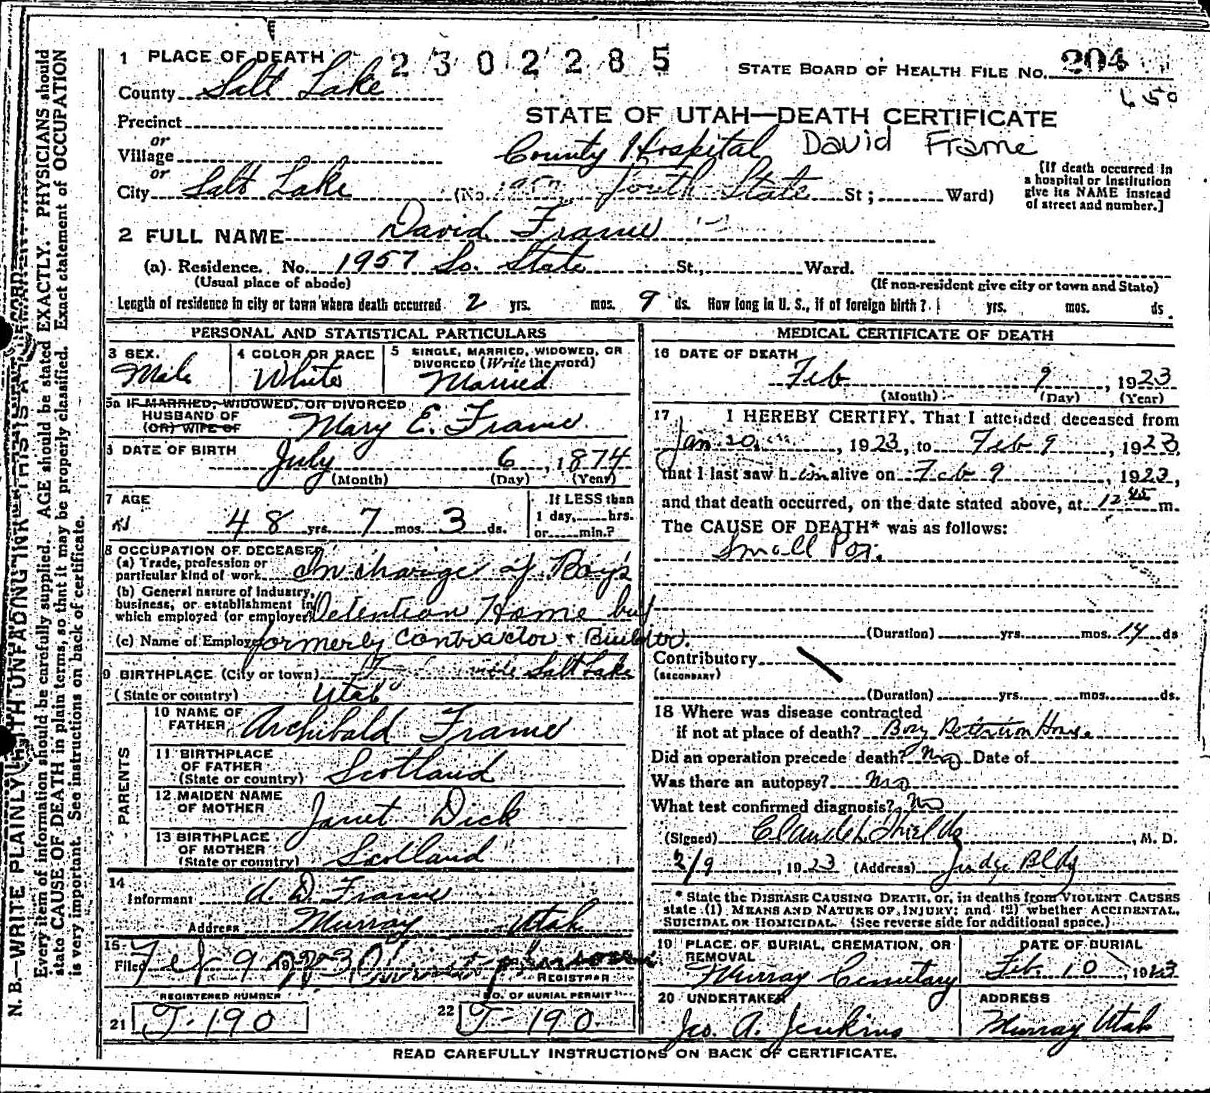 1 PLACE OF DEATH 2302285
STATE BOARD OF HEALTH FILE No. 204
650
County Salt Lake
STATE OF UTAH—DEATH CERTIFICATE
Precinct
or
Village
County Hospital David Frame
or
City Salt Lake (No. South State St; Ward)
[If death occurred in a hospital or institution give its NAME instead of street and number.]
2 FULL NAME David Frame
(a). Residence. No. 1957 So. State St., Ward.
(Usual place of abode) (If non-resident give city or town and State)
Length of residence in city or town where death occurred 2 yrs. mos. 9 ds. How long in U. S., if of foreign birth? yrs. mos. ds.
PERSONAL AND STATISTICAL PARTICULARS
3 SEX. Male
4 COLOR OR RACE White
5 SINGLE, MARRIED, WIDOWED, OR DIVORCED (Write the word) Married
5a IF MARRIED, WIDOWED, OR DIVORCED
HUSBAND OF
(OR) WIFE OF Mary E. Frame
6 DATE OF BIRTH July 6, 1874
(Month) (Day) (Year)
7 AGE
48 yrs. 7 mos. 3 ds.
If LESS than
1 day, hrs.
or min.?
8 OCCUPATION OF DECEASED
(a) Trade, profession or
particular kind of work In charge of Boy's
(b) General nature of Industry,
business, or establishment in
which employed (or employer) Detention Home but
(c) Name of Employer formerly Contractor & Builder.
9 BIRTHPLACE (City or town) Salt Lake
(State or country) Utah
PARENTS
10 NAME OF
FATHER Archibald Frame
11 BIRTHPLACE
OF FATHER
(State or country) Scotland
12 MAIDEN NAME
OF MOTHER Janet Dick
13 BIRTHPLACE
OF MOTHER
(State or country) Scotland
14
Informant A. D. Frame
Address Murray Utah
15
Filed Feb 9 1923
REGISTRAR
REGISTERED NUMBER
21 J-190
NO. OF BURIAL PERMIT
22 J-190
MEDICAL CERTIFICATE OF DEATH
16 DATE OF DEATH
Feb 9, 1923
(Month) (Day) (Year)
17 I HEREBY CERTIFY. That I attended deceased from
Jan 20, 1923, to Feb 9, 1923,
that I last saw him alive on Feb 9, 1923,
and that death occurred, on the date stated above, at 12 45 m.
The CAUSE OF DEATH* was as follows:
Small Pox.
(Duration) yrs. mos. 14 ds
Contributory
(SECONDARY)
(Duration) yrs. mos. ds.
18 Where was disease contracted
if not at place of death? Boy Detention House
Did an operation precede death? No Date of
Was there an autopsy? No
What test confirmed diagnosis? No
(Signed) Claude L Shields, M. D.
2/9, 1923 (Address) Judge Bldg
* State the DISEASE CAUSING DEATH, or, in deaths from VIOLENT CAUSES
state (1) MEANS AND NATURE OF INJURY; and (2) whether ACCIDENTAL,
SUICIDAL OR HOMICIDAL. (See reverse side for additional space.)
19 PLACE OF BURIAL, CREMATION, OR
REMOVAL Murray Cemetary
DATE OF BURIAL
Feb. 10, 1923
20 UNDERTAKER
Jos. A. Jenkins
ADDRESS
Murray Utah
READ CAREFULLY INSTRUCTIONS ON BACK OF CERTIFICATE.
N. B.—WRITE PLAINLY WITH UNFADING INK THIS IS A
Every item of information should be carefully supplied. AGE should be stated EXACTLY. PHYSICIANS should
state CAUSE OF DEATH in plain terms, so that it may be properly classified. Exact statement of OCCUPATION
is very important. See instructions on back of certificate.